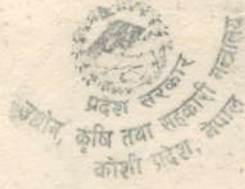 प्रदेश सरकार
उद्योग, कृषि तथा सहकारी मन्त्रालय
कोशी प्रदेश, नेपाल